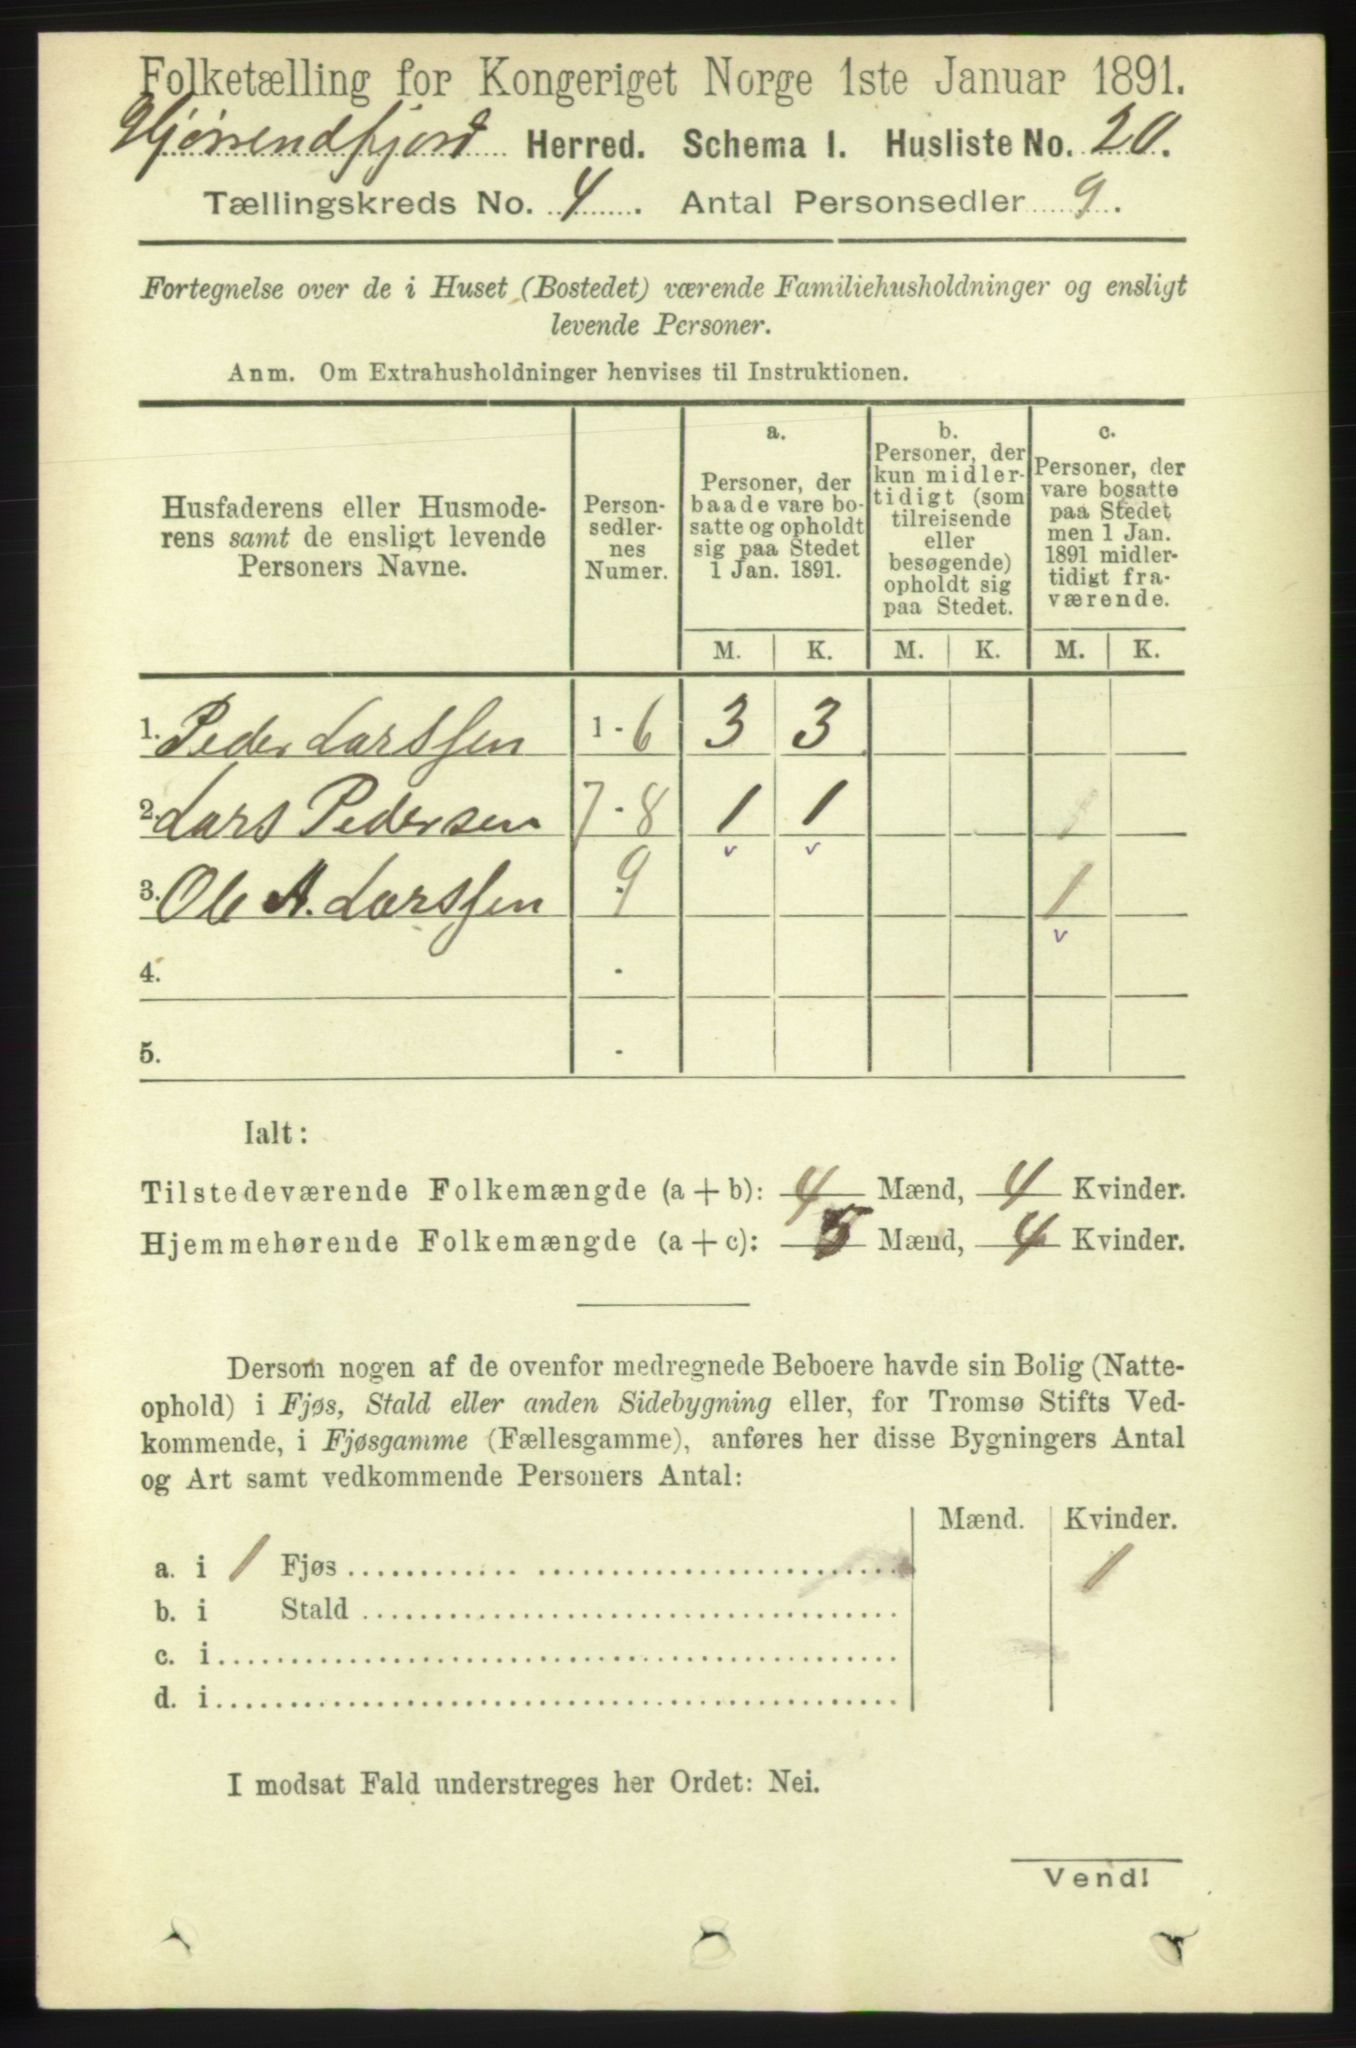 Folketælling for Kongeriget Norge 1ste Januar 1891.
Hjørrendfjord Herred. Schema I. Husliste No. 20.
Tællingskreds No. 4. Antal Personsedler 9.
Fortegnelse over de i Huset (Bostedet) værende Familiehusholdninger og ensligt
levende Personer.
Anm. Om Extrahusholdninger henvises til Instruktionen.
Husfaderens eller Husmode-
rens samt de ensligt levende
Personers Navne.
Person-
sedler-
nes
Numer.
a.
Personer, der
baade vare bo-
satte og opholdt
sig paa Stedet
1 Jan. 1891.
b.
Personer, der
kun midler-
tidigt (som
tilreisende
eller
besøgende)
opholdt sig
paa Stedet.
c.
Personer, der
vare bosatte
paa Stedet
men 1 Jan.
1891 midler-
tidigt fra-
værende.
M. K. M. K. M. K.
1. Peder Larssen 1 - 6 3 3
2. Lars Pedersen 7 - 8 1 1
v v
3. Ole A. Larssen 9 1
v
4. -
5. -
Ialt:
Tilstedeværende Folkemængde (a + b): 4 Mænd, 4 Kvinder.
Hjemmehørende Folkemængde (a + c): 5 Mænd, 4 Kvinder.
Dersom nogen af de ovenfor medregnede Beboere havde sin Bolig (Natte-
ophold) i Fjøs, Stald eller anden Sidebygning eller, for Tromsø Stifts Ved-
kommende, i Fjøsgamme (Fællesgamme), anføres her disse Bygningers Antal
og Art samt vedkommende Personers Antal:
Mænd. Kvinder.
a. i 1 Fjøs 1
b. i Stald
c. i
d. i
I modsat Fald understreges her Ordet: Nei.
Vend!